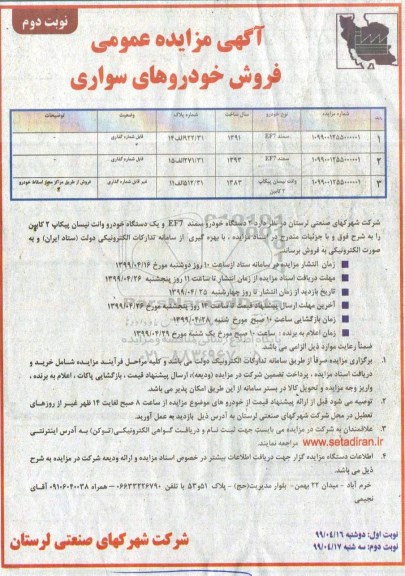 نوبت دوم
آگهی مزایده عمومی
فروش خودروهای سواری
شماره مزایده نوع خودرو سال ساخت شماره پلاک وضعیت توضیحات
۱ ۱۰۹۹۰۰۱۲۵۵۰۰۰۰۰۱ سمند EF7 ۱۳۹۱ قابل شماره گذاری -
۲ ۱۰۹۹۰۰۱۲۵۵۰۰۰۰۰۱ سمند EF7 ۱۳۹۳ قابل شماره گذاری -
۳ ۱۰۹۹۰۰۱۲۵۵۰۰۰۰۰۱ وانت نیسان پیکاپ ۲ کابین ۱۳۸۳ غیر قابل شماره گذاری فروش از طریق مراکز مجوز اسقاط خودرو
شرکت شهرکهای صنعتی لرستان در نظر دارد ۲ دستگاه خودرو سمند EF7 و یک دستگاه خودرو وانت نیسان پیکاپ ۲ کابین
را به شرح فوق و با جزئیات مندرج در اسناد مزایده ، با بهره گیری از سامانه تدارکات الکترونیکی دولت (ستاد ایران) و به
صورت الکترونیکی به فروش برساند.
زمان انتشار مزایده در سامانه ستاد ازساعت ۱۰ روز دوشنبه مورخ ۱۳۹۹/۰۴/۱۶
مهلت دریافت اسناد مزایده از زمان انتشار تا ساعت ۱۱ روز پنجشنبه مورخ ۱۳۹۹/۰۴/۲۶
تاریخ بازدید از زمان انتشار تا روز چهارشنبه ۱۳۹۹/۰۴/۲۵
آخرین مهلت ارسال پیشنهاد قیمت تا ساعت ۱۴ روز پنجشنبه مورخ ۱۳۹۹/۰۴/۲۶
زمان بازگشایی ساعت ۱۰ صبح مورخ شنبه ۱۳۹۹/۰۴/۲۸
زمان اعلام به برنده : ساعت ۱۰ صبح مورخ یک شنبه مورخ ۱۳۹۹/۰۴/۲۹
ضمناً رعایت موارد ذیل الزامی می باشد.
۱. برگزاری مزایده صرفاً از طریق سامانه تدارکات الکترونیک دولت می باشد و کلیه مراحل فرآیند مزایده شامل خرید و
دریافت اسناد مزایده ، پرداخت تضمین شرکت در مزایده (ودیعه)، ارسال پیشنهاد قیمت ، بازگشایی پاکات ، اعلام به برنده ،
واریز وجه مزایده و تحویل کالا در بستر سامانه از این طریق امکان پذیر می باشد.
۲. توصیه می شود قبل از ارائه پیشنهاد قیمت از خودرو های موضوع مزایده از ساعت ۸ صبح لغایت ۱۴ ظهر غیر از روزهای
تعطیل در محل شرکت شهرکهای صنعتی لرستان به آدرس ذیل بازدید به عمل آورید.
۳. علاقمندان به شرکت در مزایده می بایست جهت ثبت نام و دریافت گواهی الکترونیکی(توکن) به آدرس اینترنتی
www.setadiran.ir مراجعه نمایند.
۴. اطلاعات دستگاه مزایده گزار جهت دریافت اطلاعات بیشتر در خصوص اسناد مزایده و ارائه ودیعه شرکت در مزایده به شرح
ذیل می باشد.
خرم آباد - میدان ۲۲ بهمن- بلوار مدیریت(حج) - پلاک ۵۱و۵۳ با تلفن ۰۶۶۳۳۲۲۶۷۹۰ همراه ۰۹۱۶۰۶۴۰۰۳۸ آقای
نجیمی
نوبت اول: دوشنبه ۹۹/۰۴/۱۶
نوبت دوم: سه شنبه ۹۹/۰۴/۱۷
شرکت شهرکهای صنعتی لرستان